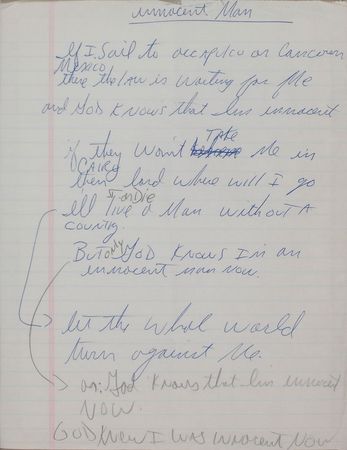 innocent Man
If I Sail to accapulco or Cancoon
Mexico
there the law is waiting for Me
and GOD KNOWS that Im innocent
if they Won't TAKE Me in
CAIRO
then lord where will I go
I'll live & die a Man without A
country.
But only GOD Knows I'm an
innocent man now.
let the whol world
turn against Me.
or: God Knows that Im innocent
NOW.
GOD KNEW I WAS INNOCENT NOW